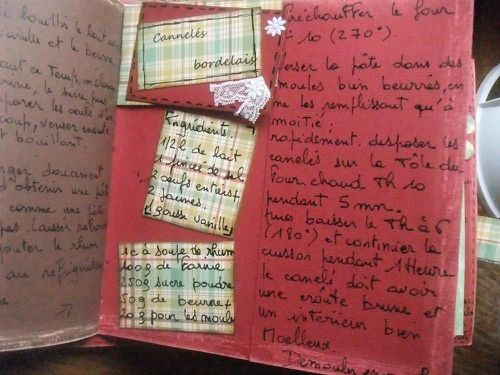 bouillir le lait avec
vanille et le beurre
ce temps, mélanger
le sucre puis
les oeufs d'un
coup, verser ensuite
bouillant.
doucement
d'obtenir une pâte
comme une pâte
Laisser
le rhum
au
Cannelés
bordelais
Ingrédients:
1/2 l de lait
1 pincée de sel
2 oeufs entiers+
2 jaunes.
1 gousse vanille
1 c à soupe de rhum
100g de farine
250g sucre poudre
50g de beurre+
20g pour les moules
Préchauffer le four
10 (270°)
Verser la pâte dans des
moules bien beurrés, en
ne les remplissant qu'à
moitié;
rapidement. disposer les
canelés sur la tôle du
four chaud Th 10
pendant 5 mn.
puis baisser le Th à 6
(180°) et continuer la
cuisson pendant 1 Heure
le canelé doit avoir
une croute brune et
un intérieur bien
Moelleux.
Démouler